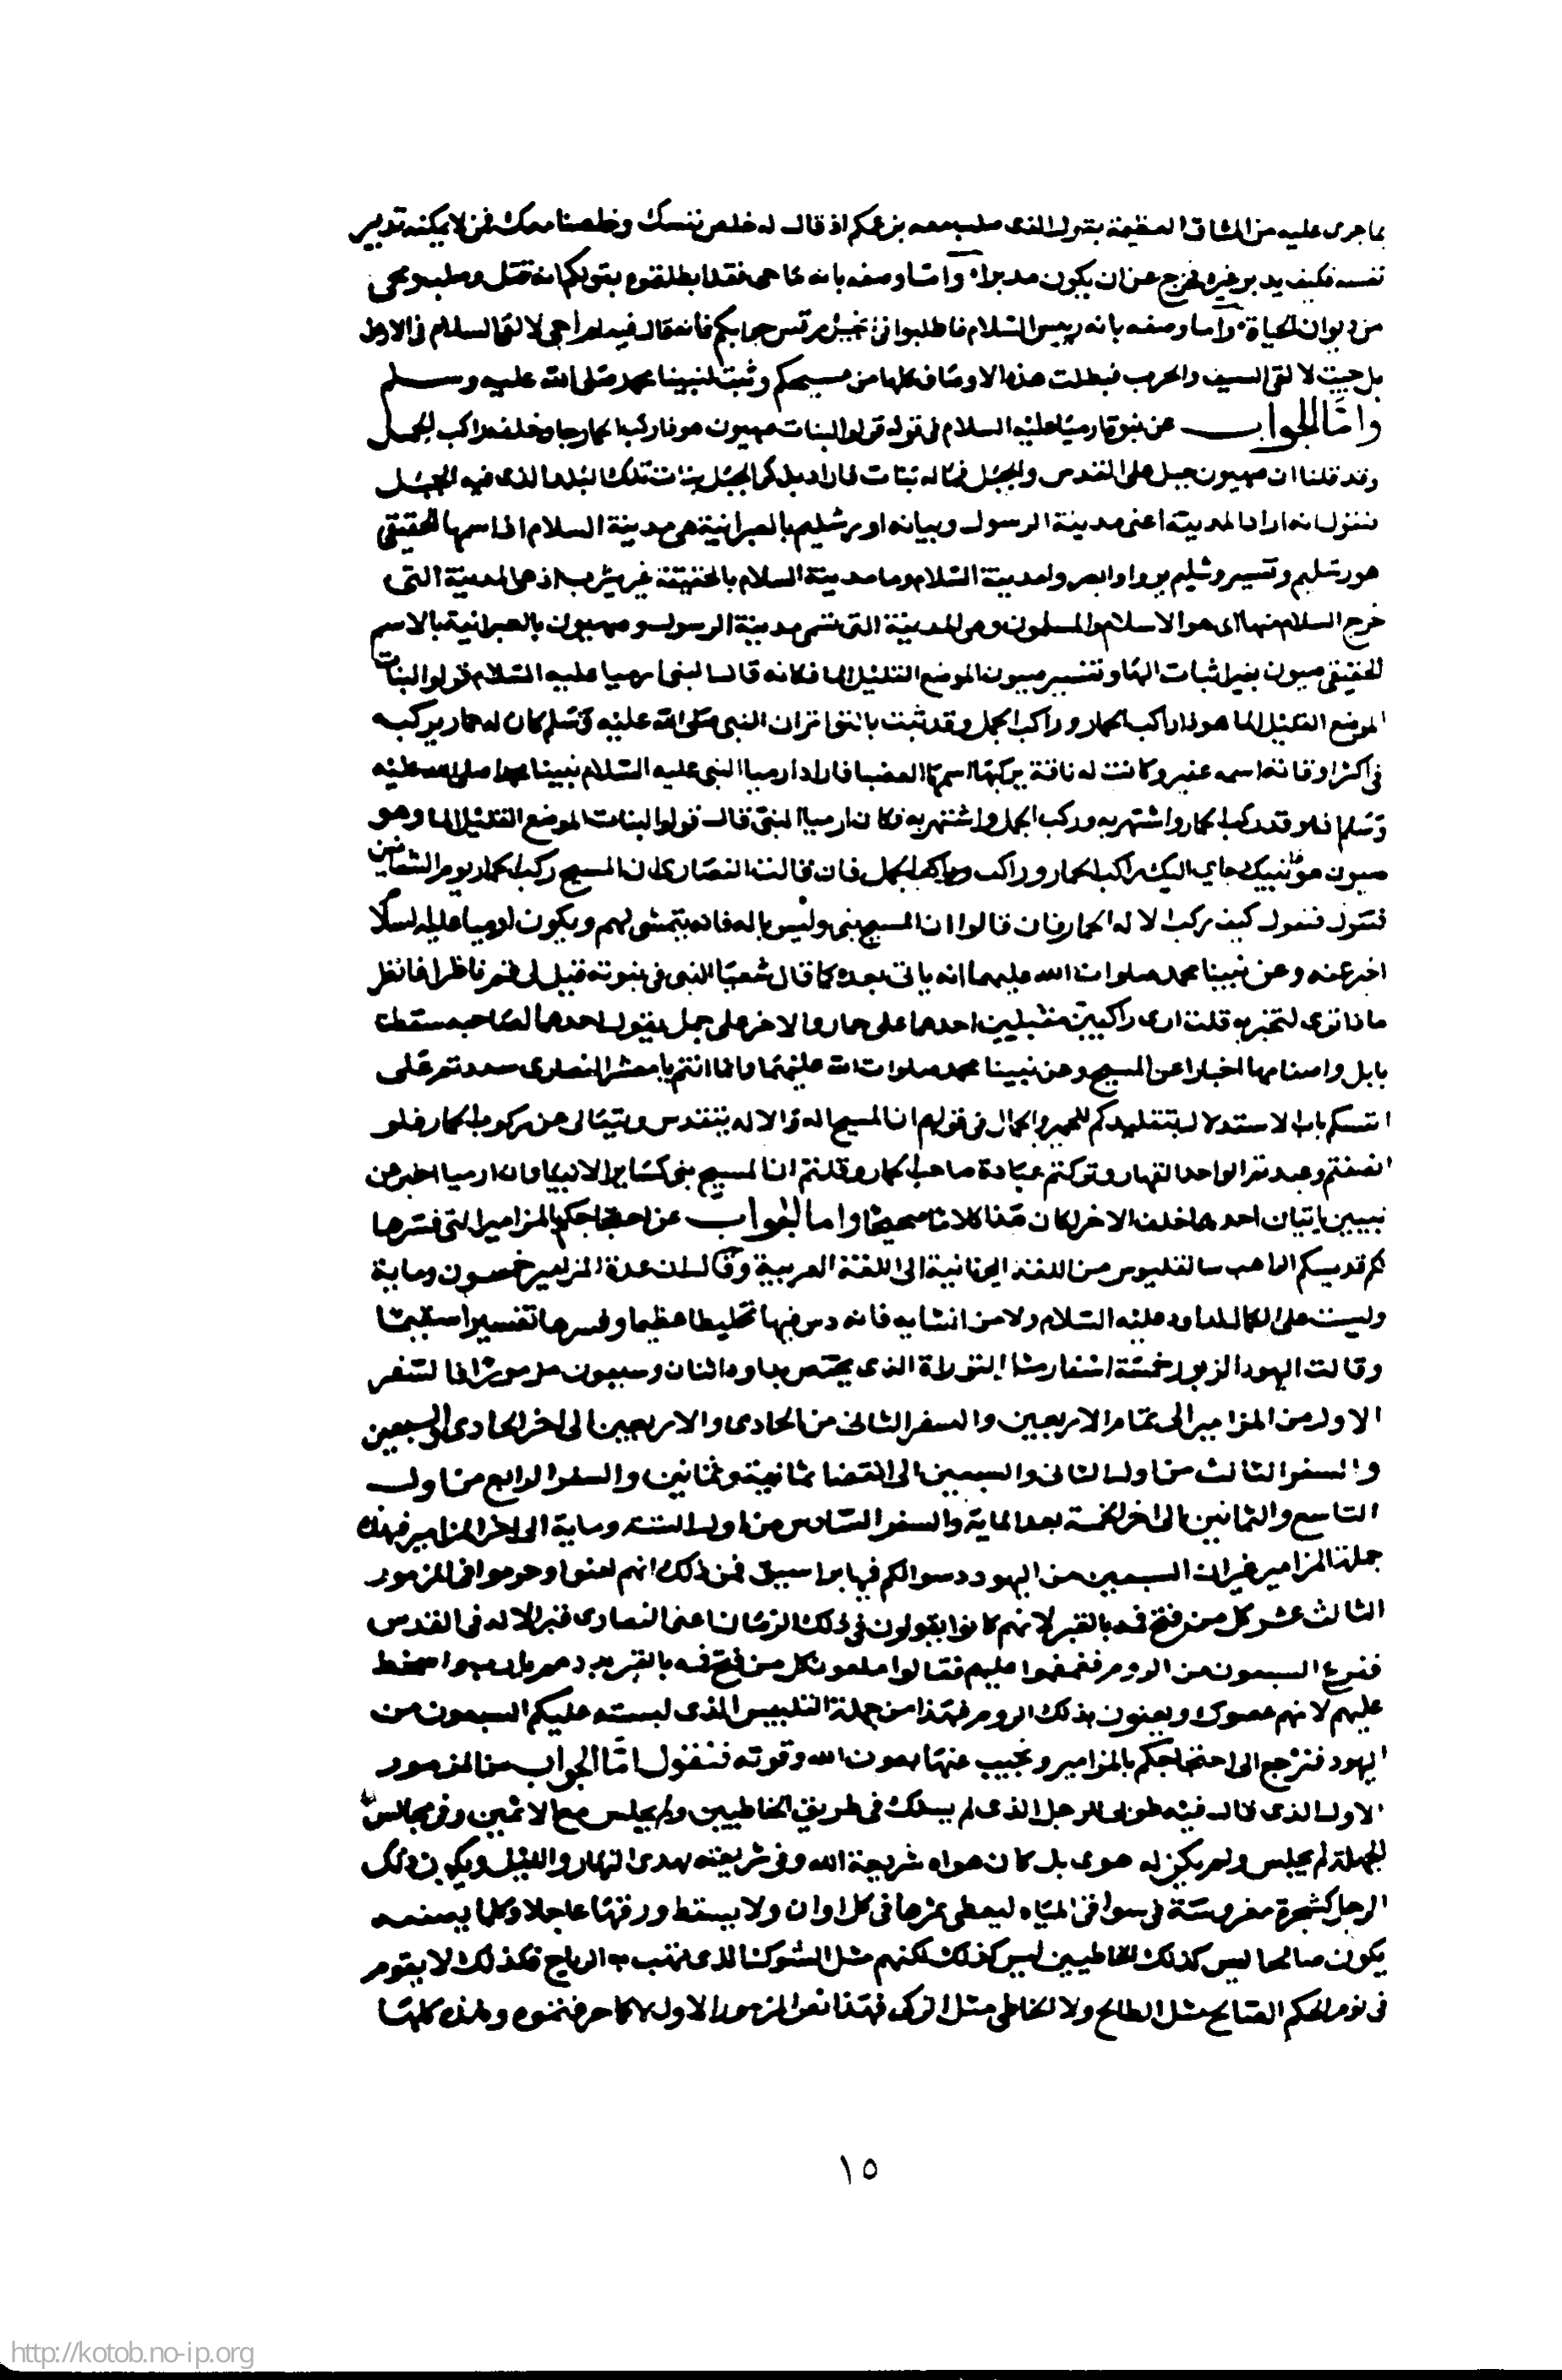 بما جرى عليه من المشاق العظيمة بقول الذى صلب معه بزعمكم اذ قال له خلص نفسك وخلصنا معك فمن لا يمكنه تدبير
نفسه فكيف يدبر غيره فخرج عن ان يكون مدبرا واما وصفه بانه ماحى فقد ابطلتموه بقولكم انه قتل وصلب ومحى
من ديوان الحياة واما وصفه بانه رييس السلام فاطلبوا فى انجيل مرقس جوابكم فانه قال فيه لم اجى لالقى السلام فى الارض
بل جيت لالقى السيف والحرب فبطلت هذه الاوصاف كلها من مسيحكم وثبت لنبينا محمد صلى الله عليه وسلم
واما الجواب عن نبوة ارميا عليه السلام فى قوله قولوا لبنات صهيون هوذا راكب الحمار جا وخلفه راكب الجمل
وقد قلنا ان صهيون جبل على القدس والجبل فما له بنات فاراد بذكر الجبل بنات تلك البلد الذى فيه الجبل
فنقول انه اراد المدينة اعنى مدينة الرسول وبيانه اورشليم بالعبرانية هى مدينة السلام انما اسمها الحقيقى
هو رشليم وتفسير وشليم بواو ابصروا مدينة السلام وما مدينة السلام بالحقيقة غير يثرب اذ هى المدينة التى
خرج السلام منها اى هو الاسلام والمسلمون وهى المدينة التى تسمى مدينة الرسول وصهيون بالعبرانية بالاسم
الحقيقى صيون بغير اثبات الها وتفسير صيون الموضع القليل الما فكانه قال النبى ارميا عليه السلام قولوا لبنات
الموضع القليل الما هوذا راكب الحمار وراكب الجمل وقد ثبت بالتواتر ان النبى صلى الله عليه وسلم كان له حمار يركبه
فى اكثر اوقاته اسمه عفير وكانت له ناقة يركبها اسمها العضبا فاراد ارميا النبى عليه السلام نبينا محمدا صلى الله عليه
وسلم فلو قد ركب الحمار واشتهر به وركب الجمل واشتهر به فكان ارميا النبى قال قولوا لبنات الموضع القليل الما وهو
صيون هو نبيك جاى اليك راكب الحمار وراكب الجمل فان قالت النصارى ان المسيح ركب الحمار يوم الشعانين
فنقول كيف يركب الاله الحمار فان قالوا ان المسيح نبى وليس باله فانه يتمشى لهم ويكون ارميا عليه السلام
اخبر عنه وعن نبينا محمد صلوات الله عليهما انه ياتى بعده كما قال شعيا النبى فى نبوته قيل لى قم ناظرا فانظر
ماذا ترى لتخبر به قلت ارى راكبين مقبلين احدهما على حمار والاخر على جمل يقول احدهما لصاحبه سقطت
بابل واصنامها اخبارا عن المسيح وعن نبينا محمد صلوات الله عليهما وانما انتم يا معشر النصارى سددتم على
انفسكم باب الاستدلال بتقليدكم للحمير والجمال فى قولهم ان المسيح اله والاله يتقدس ويتعالى عن ركوب الحمار فلو
انصفتم وعبدتم الواحد القهار وتركتم عبادة صاحب الحمار وقلتم ان المسيح نبى كساير الانبيا وان ارميا اخبر عن
نبيين ياتيان احدهما خلف الاخر لكان هذا كلاما صحيحا واما الجواب عن احتجاجكم بالمزامير التى فسرها
لكم قديسكم الراهب من اللغة اليونانية الى اللغة العربية وقال ان عدة المزامير خمسون وماية
وليست على الكمال لداود عليه السلام ولا من انشايه فانه دس فيها تخليطا عظيما وفسرها تفسيرا
وقالت اليهود الزبور خمسة اسفار مثل التورلة الذى يختص بداود اثنان وسبعون مزمورا فالسفر
الاول من المزامير الى تمام الاربعين والسفر الثانى من الحادى والاربعين الى اخر الحادى والسبعين
والسفر الثالث من اول الثانى والسبعين الى انقضا ثمانية وثمانين والسفر الرابع من اول
التاسع والثمانين الى اخر الخمسة بعد الماية والسفر السادس من اول الستة وماية الى اخر المزامير فهذه
جملة المزامير غير ان السبعين من اليهود دسوا لكم فيها فمن ذلك انهم لعنوا وحرموا فى المزمور
الثالث عشر كل من فتح فمه بالقبر لانهم كانوا يقولون فى ذلك الزمان اعنى النصارى قبر الاله فى القدس
ففزع السبعون من الروم عليهم فقالوا ملعون كل من فتح فمه بالقبر اسخط
عليهم لانهم عصوك ويعنون بذلك الروم فهذا من جملة التلبيس الذى لبسته عليكم السبعون من
اليهود فنرجع الى احتجاجكم بالمزامير ونجيب عنها بعون الله وقوته فنقول اما الجواب من المزمور
الاول الذى قال فيه طوبى للرجل الذى لم يسلك فى طريق الخاطيين ولم يجلس مع الاثمين وفى مجالس
الجهلة لم يجلس ولم يكن له هوى بل كان هواه شريعة الله وفى شريعته يهدى النهار والليل ويكون ذلك
الرجل كشجرة مغروسة فى سواقى المياه ليعطى ثمرها فى كل اوان ولا يسقط ورقها عاجلا وكلما يصنعه
يكون صالحا ليس كذلك الخاطيين ليس كذلك لكنهم مثل الشوك الذى تهب به الرياح فكذلك لا يقوم
فى يوم الحكم الصالح مثل الطالح ولا الخاطى مثل الزكى فهذا نص المزمور الاول لا كما حرفتموه وهذه كلها
١٥
http://kotob.no-ip.org